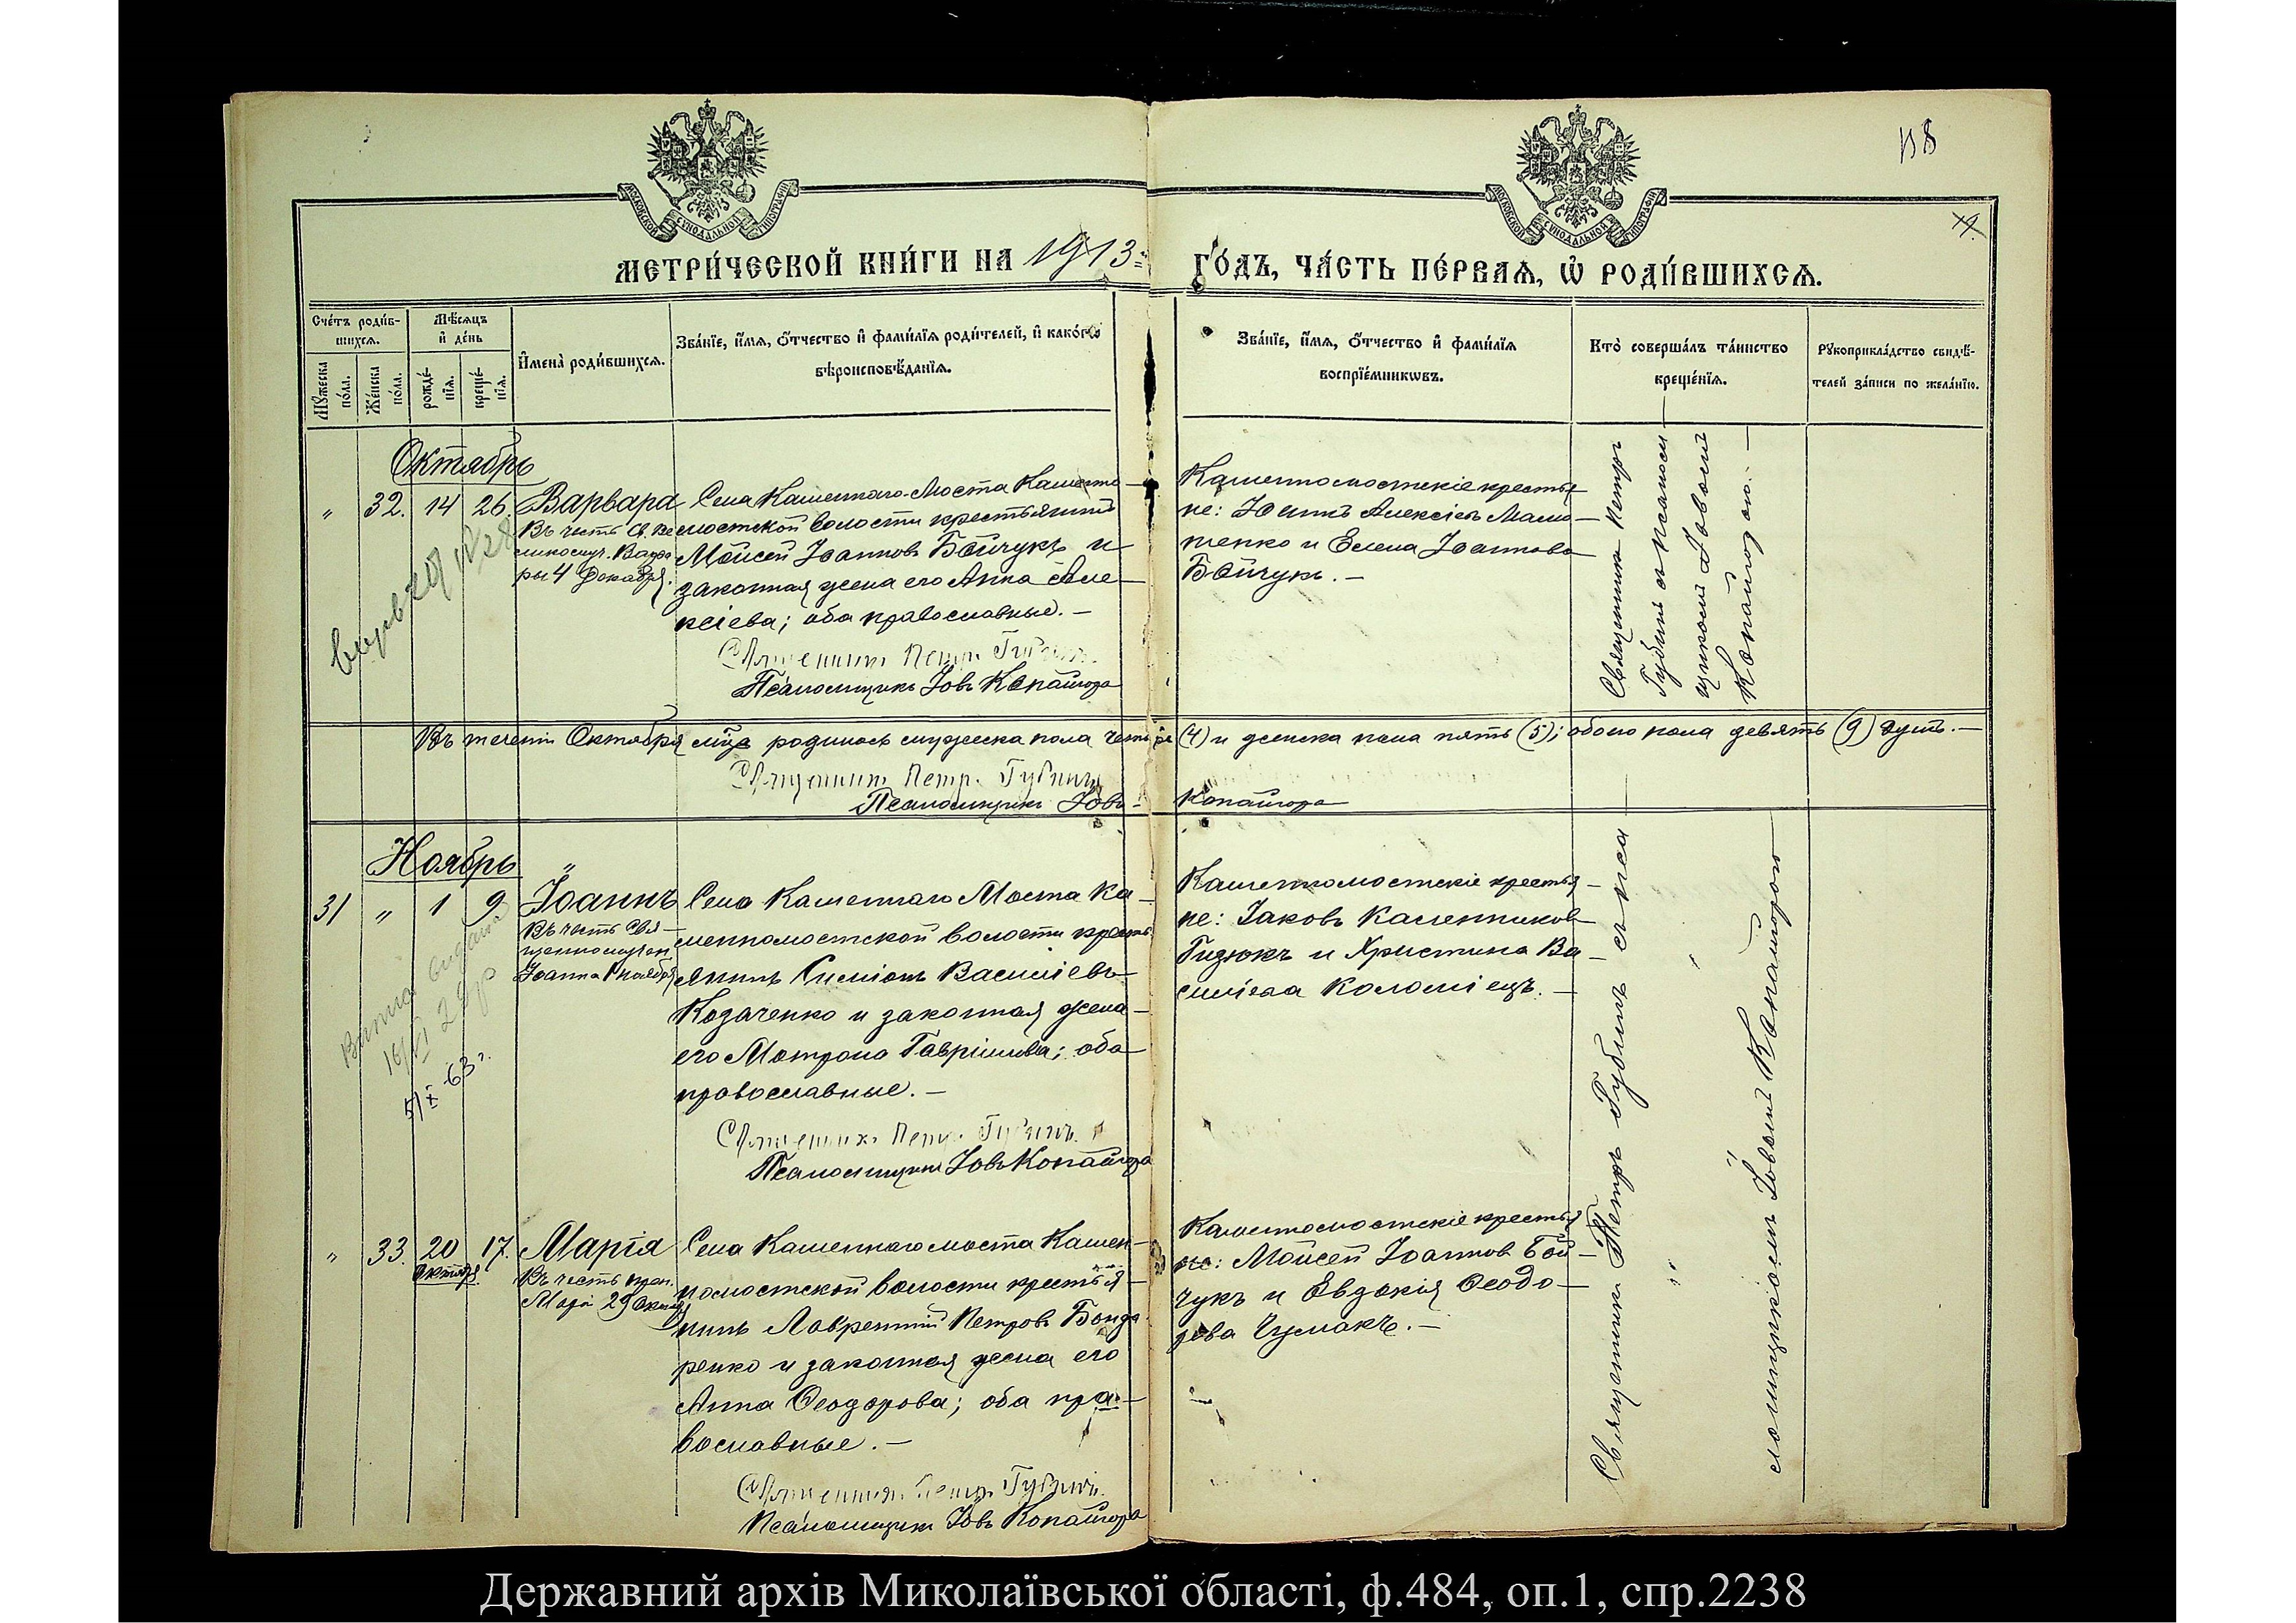 138
19.
МОСКОВСКОЙ СѴНОДАЛЬНОЙ ТИПОГРАФІИ
МОСКОВСКОЙ СѴНОДАЛЬНОЙ ТИПОГРАФІИ
МЕТРИ́ЧЕСКОЙ КНИ́ГИ НА 1913 ГО́ДЪ, ЧА́СТЬ ПЕ́РВАѦ, Ѡ҆ РОДИ́ВШИХСѦ.
Сче́тъ роди́в-
шихсѧ.
Мꙋ́жеска по́ла.
Же́нска по́ла.
Мѣ́сѧцъ и҆ де́нь
рожде́-нїѧ.
креще́-нїѧ.
И҆мена̀ роди́вшихсѧ.
Зва́нїе, и҆́мѧ, ѻ҆́тчество и҆ фами́лїѧ роди́телей, и҆ како́гѡ
вѣроисповѣ́данїѧ.
Зва́нїе, и҆́мѧ, ѻ҆́тчество и҆ фами́лїѧ
воспрїе́мникѡвъ.
Кто̀ соверша́лъ та́инство
креще́нїѧ.
Рꙋкоприкла́дство свидѣ́-
телей за́писи по жела́нїю.
Октябрь
„ 32. 14 26 Варвара
Въ честь Св. Ве
ликомуч. Варва
ры 4 Декабря.
Села Каменнаго-Моста Каменно-
мостской волости крестьянинъ
Мойсей Іоанновъ Бойчукъ и
законная жена его Анна Але-
ксіева; оба православные. –
Священникъ Петръ Губинъ
Псаломщикъ Іовъ Копайгора
Каменномостскіе крестья-
не: Іоаннъ Алексіевъ
и Елена Іоаннова
Бойчукъ. –
Священникъ Петръ
Губинъ съ псалом-
щикомъ Іовомъ
Копайгорою. –
Въ теченіи Октября м-ца родилось мужеска пола четыре (4) и женска пола пять (5); обоего пола девять (9) душъ. –
Священникъ Петръ Губинъ
Псаломщикъ Іовъ Копайгора
Ноябрь „
31 „ 1 9 Іоаннъ
Въ честь Свя-
щенномучен.
Іоанна 1 ноября
5/X-63 г.
Села Каменнаго Моста Ка-
менномостской волости кресть-
янинъ Симеонъ Василіевъ
Козаченко и законная жена
его Матрона Гавріилова; оба
православные. –
Священникъ Петръ Губинъ
Псаломщикъ Іовъ Копайгора
Каменномостскіе крестья-
не: Іаковъ Каленниковъ
Гидюкъ и Христина Ва-
силіева Коломіецъ. –
„ 33. 20 17. Марія
Октября
Въ честь преп.
Маріи 29 Октяб.
Села Каменнаго моста Камен-
номостской волости крестья-
нинъ Лаврентій Петровъ Бонда-
ренко и законная жена его
Анна Ѳеодорова; оба пра-
вославные. –
Священникъ Петръ Губинъ
Псаломщикъ Іовъ Копайгора
Каменномостскіе крестья-
не: Мойсей Іоанновъ Бой-
чукъ и Евдокія Ѳеодо-
рова Чумакъ. –
Священникъ Петръ Губинъ съ пса-
ломщикомъ Іовомъ Копайгорою
Державний архів Миколаївської області, ф.484, оп.1, спр.2238